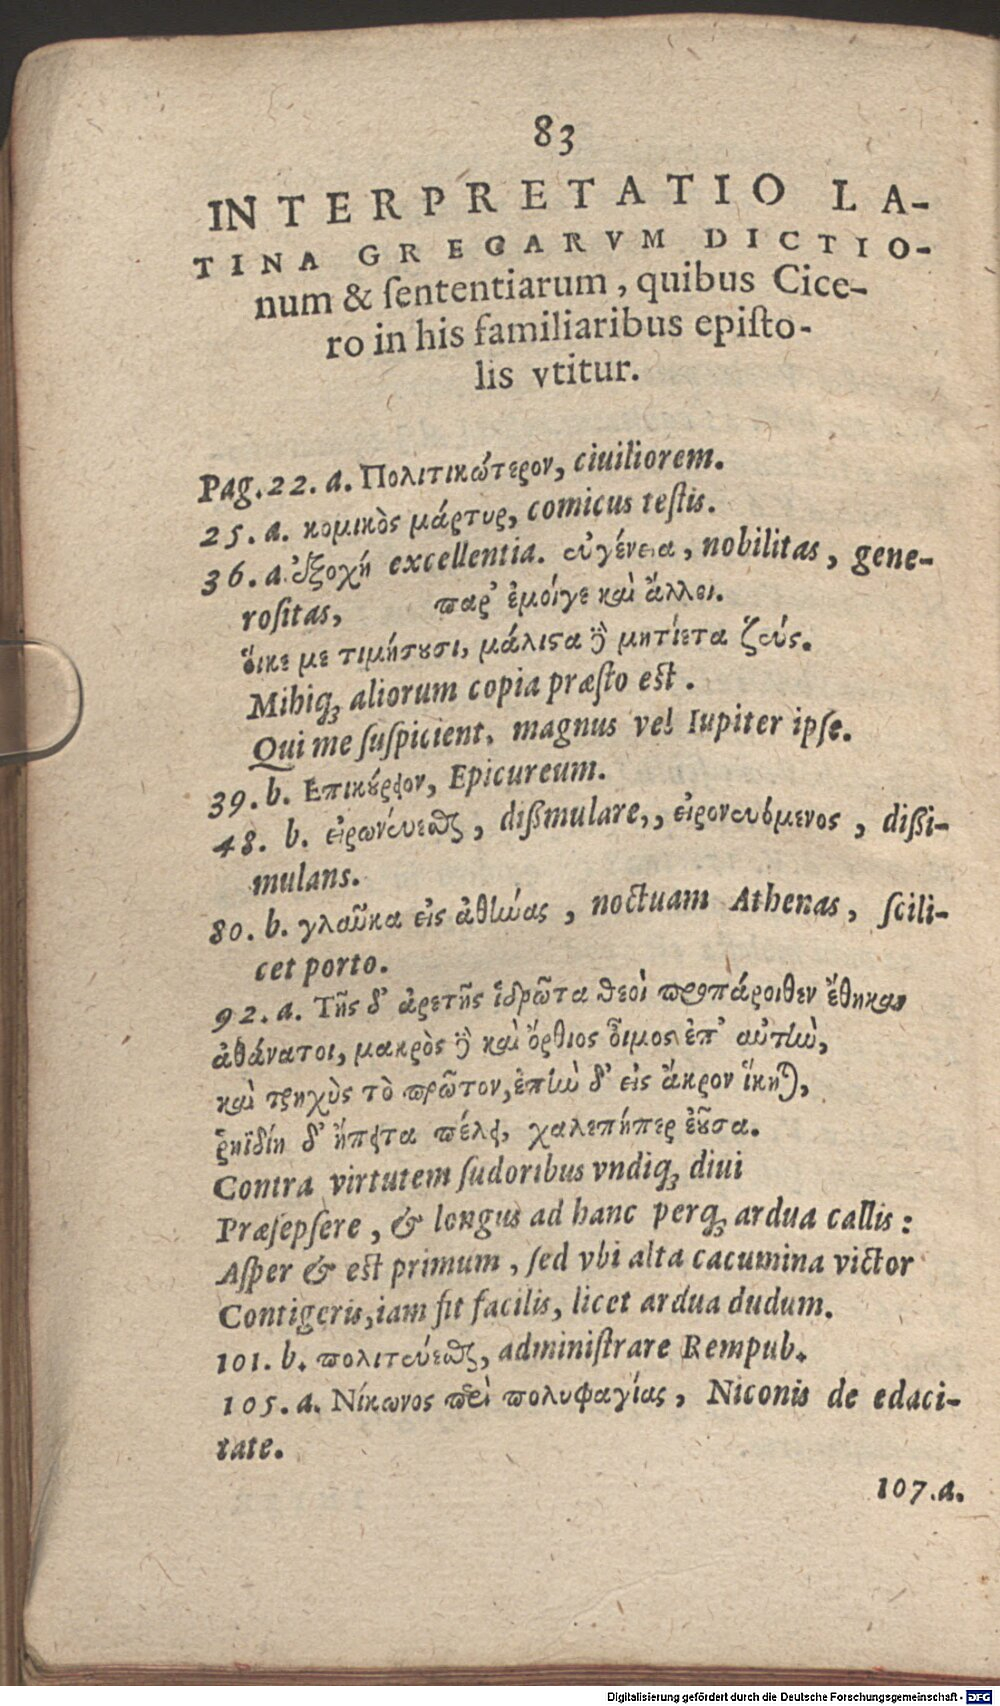 83
INTERPRETATIO LA-
TINA GRECARVM DICTIO-
num & ſententiarum, quibus Cice-
ro in his familiaribus epiſto-
lis vtitur.
Pag. 22. a. Πολιτικώτερον, ciuiliorem.
25. a. κομικὸς μάρτυρ, comicus teſtis.
36. a. ἐξοχή excellentia. εὐγένεια, nobilitas, gene-
roſitas, παρ' ἐμοίγε καὶ ἄλλει.
ὅικε με τιμήσουσι, μάλιστα δὲ μητίετα ζεύς.
Mihiq; aliorum copia præſto est.
Qui me ſuſpicient, magnus vel Iupiter ipſe.
39. b. Επικούρειον, Epicureum.
48. b. εἰρωνεύεσθαι, dißmulare,, εἰρονευόμενος, dißi-
mulans.
80. b. γλαῦκα εἰς ἀθηνάς, noctuam Athenas, ſcili-
cet porto.
92. a. Τῆς δ' ἀρετῆς ἱδρῶτα θεοὶ προπάροιθεν ἔθηκαν
ἀθάνατοι, μακρὸς δὲ καὶ ὄρθιος οἶμος ἐπ' αὐτὴν,
καὶ τρηχὺς τὸ πρῶτον, ἐπὴν δ' εἰς ἄκρον ἵκηται,
ῥηϊδίη δ' ἤπειτα πέλει, χαλεπήπερ ἐοῦσα.
Contra virtutem ſudoribus vndiq; diui
Præſepſere, & longus ad hanc perq; ardua callis:
Aſper & est primum, ſed vbi alta cacumina victor
Contigeris, iam fit facilis, licet ardua dudum.
101. b. πολιτεύεσθαι, adminiſtrare Rempub.
105. a. Νίκωνος περὶ πολυφαγίας, Niconis de edaci-
tate.
107. a.
Digitalisierung gefördert durch die Deutsche Forschungsgemeinschaft - DFG